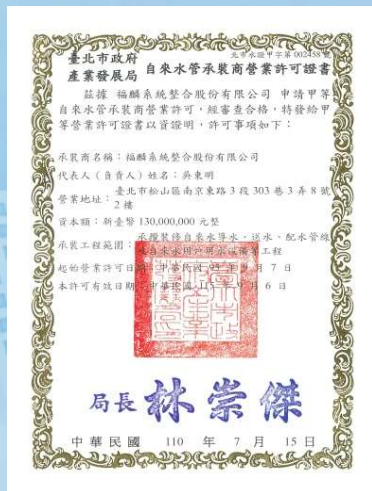 北市水證甲字第 002458 號
臺北市政府
產業發展局
自來水管承裝商營業許可證書
茲據 福麟系統整合股份有限公司 申請甲等
自來水管承裝商營業許可,經審查合格,特發給甲
等營業許可證書以資證明,許可事項如下:
承裝商名稱:福麟系統整合股份有限公司
代表人(負責人)姓名:吳東明
營業地址:臺北市松山區南京東路3段303巷3弄8號
2樓
資本額:新臺幣 130,000,000 元整
承裝工程範圍:承攬裝修自來水導水、送水、配水管線
或自來水用戶用水設備等工程
起始營業許可日期:中華民國 95 年 9 月 7 日
本許可有效日期:中華民國 115 年 9 月 6 日
局長 林崇傑
中華民國 110 年 7 月 15 日